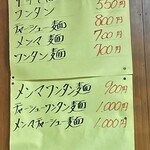 ワンタン 550円
チャーシュー麺 800円
メンマ麺 700円
ワンタン麺 700円
メンマワンタン麺 900円
チャーシューワンタン麺 1,000円
メンマチャーシュー麺 1,000円